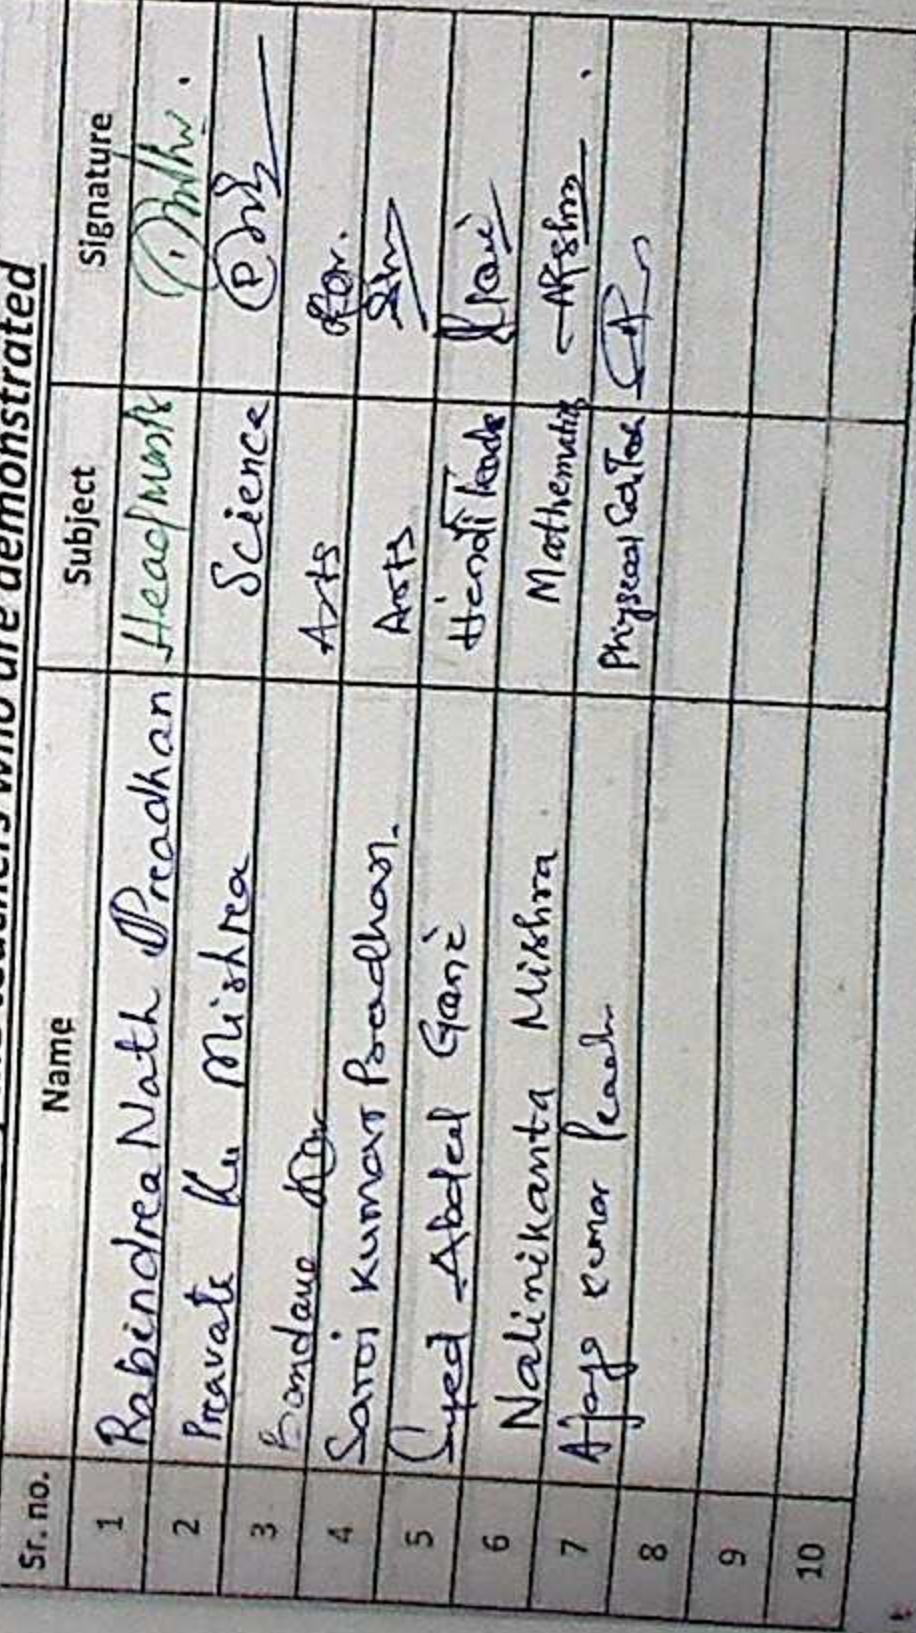 teachers who are demonstrated
Sr. no. Name Subject Signature
1 Rabindrea Nath Preadhan Headmast
2 Pravate Ku Mishrea Science
3 Bandana Kar Arts Kar.
4 Saroj Kumar Pradhan. Arts
5 Syed Abdul Gani Hindi Teach Gani
6 Nalinikanta Mishra Mathematics
7 Ajaya Kumar Physical Edn Teach
8
9
10